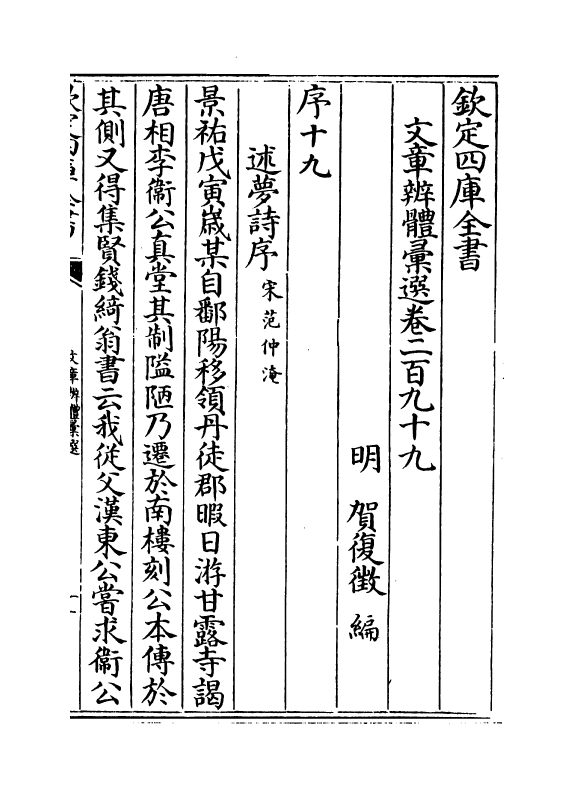 欽定四庫全書
文章辨體彙選卷二百九十九
明 賀復徴 編
序十九
述夢詩序 宋范仲淹
景祐戊寅嵗某自鄱陽移領丹徒郡暇日游甘露寺謁
唐相李衞公真堂其制隘陋乃遷於南樓刻公本傳於
其側又得集賢錢綺翁書云我從父漢東公嘗求衞公
欽定四庫全書
文章辨體彙選
一